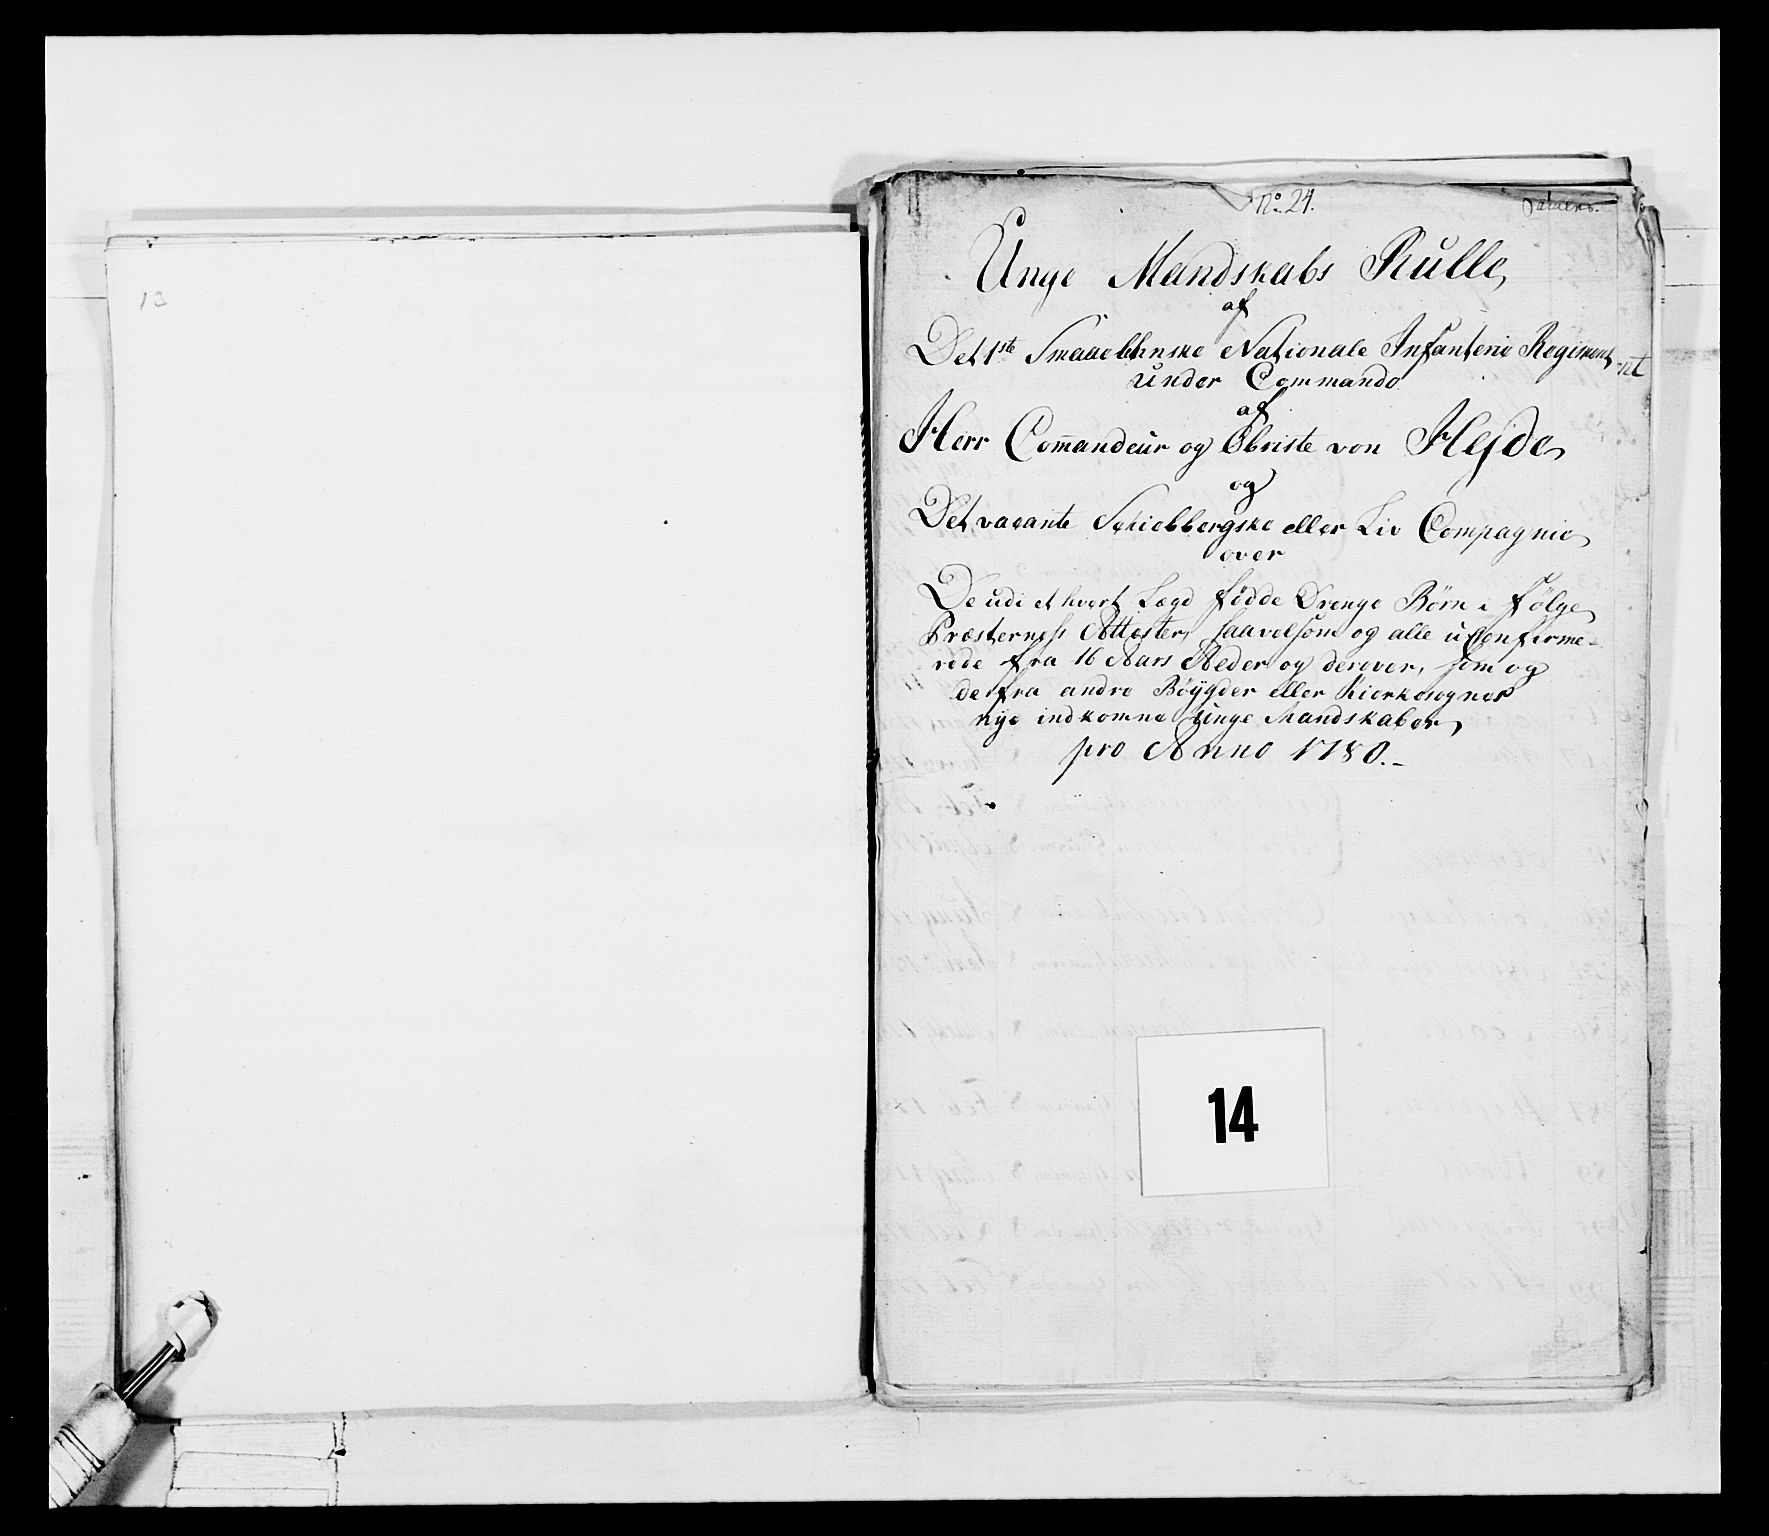 13
No. 24.
Unge Mandskabs Rulle,
af
Det 1ste Smaaelehnske Nationale Infanterie Regiment
under Commando
af
Herr Commandeur og Obriste von Hejde,
og
Det vacante Schiebbergske eller Liv Compagnie,
over
De udi et hvert Lægd fødde Drenge Børn i følge
Præsterness Attester, saavelsom og alle uConfirme-
rede fra 16 Aars Alder og derover, som og
de fra andre Bøygder eller Kierkesogner
nye indkomne Unge Mandskaber,
pro Anno 1780.-
14